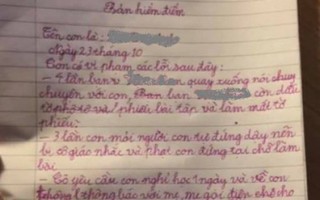 Bản kiểm điểm
Tên con là:
Ngày 27 tháng 10
Con có vi phạm các lỗi sau đây:
- 1 lần bạn quay xuống nói chuyện
chuyện với con, Bạn con dấu
tờ phiếu bài tập và làm mất tờ
phiếu:
- 3 lần con mọi người con tự đứng dậy nên
bị cô giáo nhắc và phạt con đứng tại chỗ làm
bài
- Cô yêu cầu con nghỉ học 1 ngày và về con
không thông báo với mẹ, mẹ gọi điện cho cho